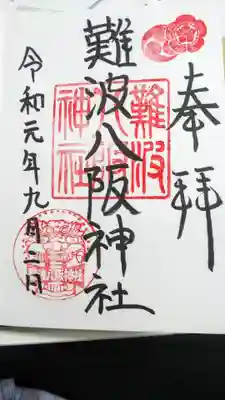 奉拝
難波八阪神社
難波
八阪
神社
令和元年九月二日